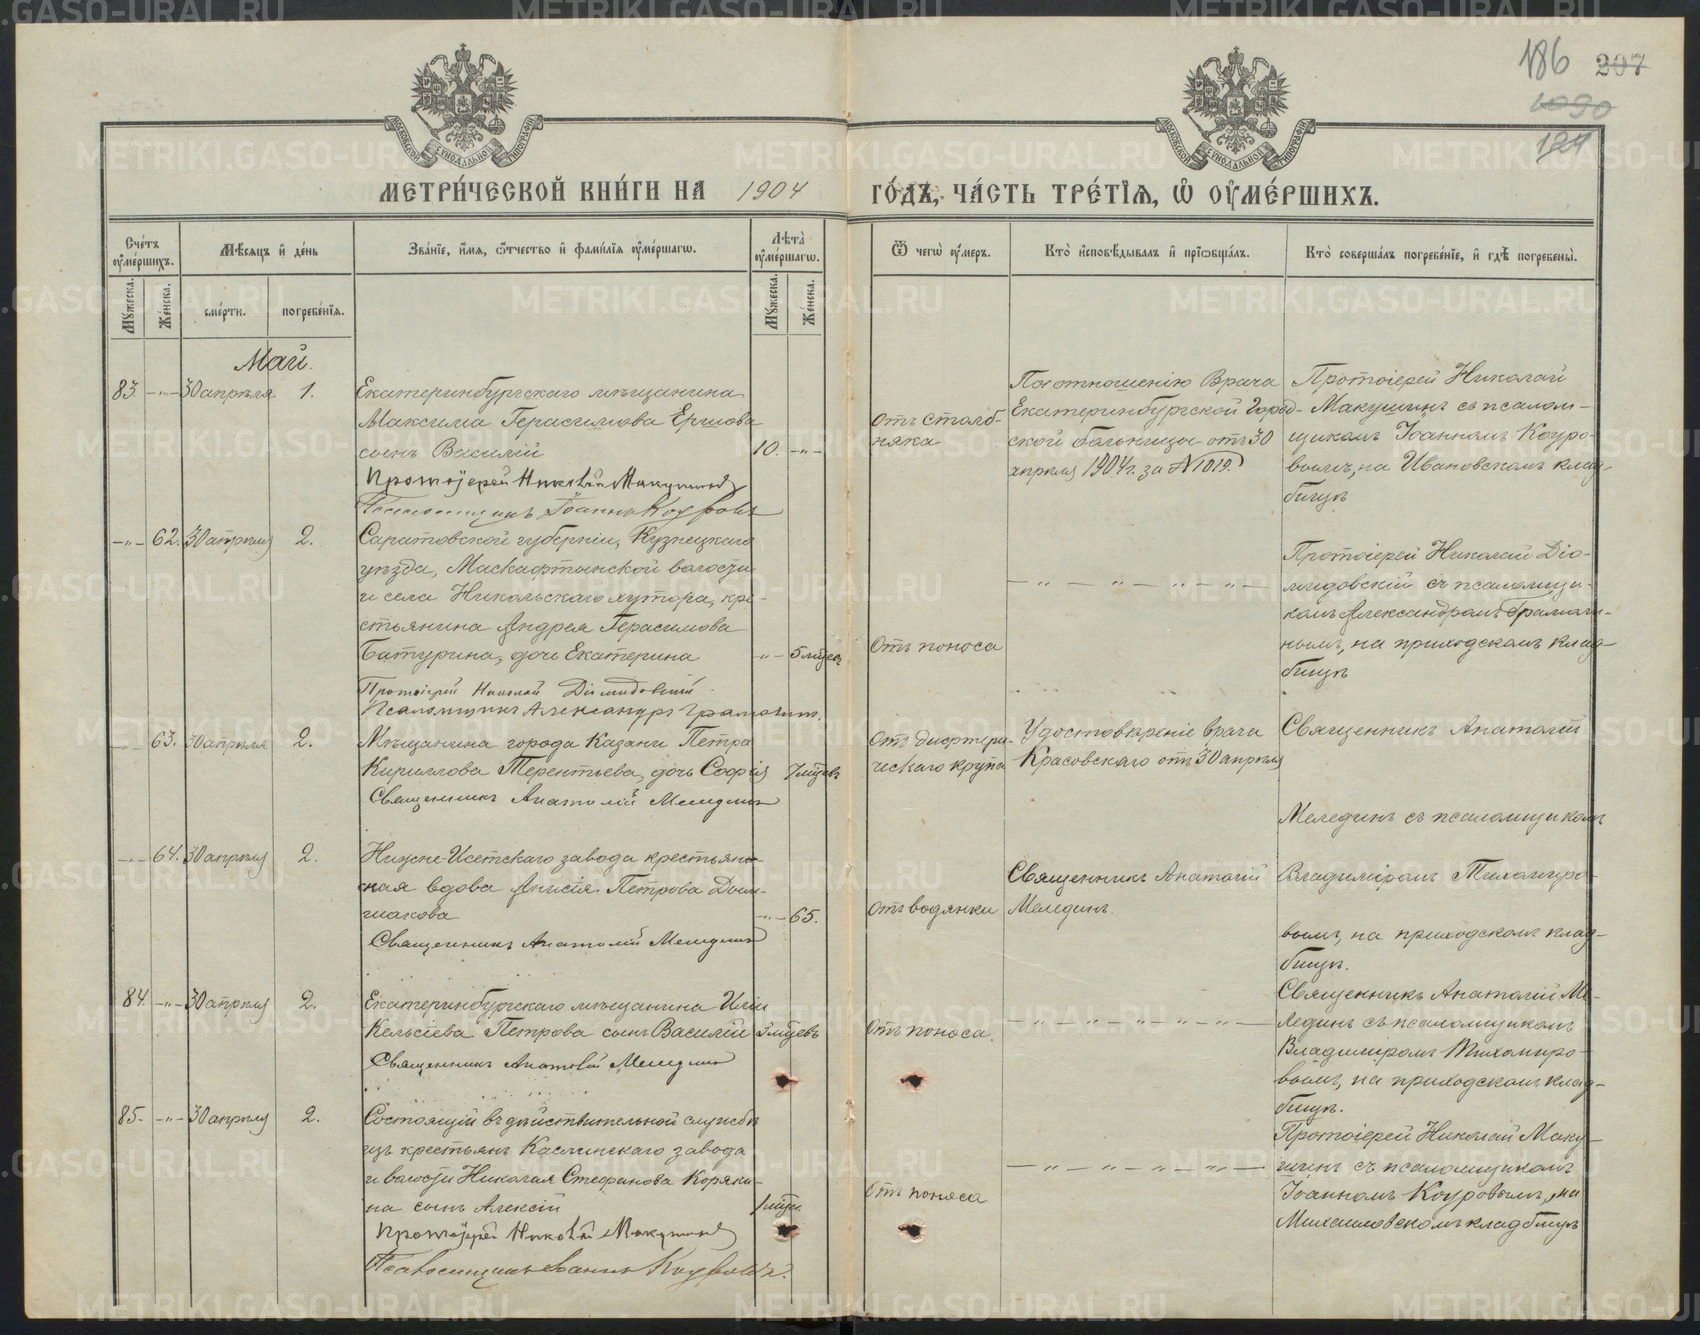 186 207
1090
МОСКОВСКОЙ СѴНОДАЛЬНОЙ ТИПОГРАФІИ
МОСКОВСКОЙ СѴНОДАЛЬНОЙ ТИПОГРАФІИ
МЕТРИ́ЧЕСКОЙ КНИ́ГИ НА 1904 ГО́ДЪ, ЧА́СТЬ ТРЕ́ТІѦ, Ѡ҆ ОУ҆МЕ́РШИХЪ.
Сче́тъ оу҆ме́ршихъ.
Мѣ́сяцъ и҆ де́нь
Зва́ніе, и҆́мя, ѻ҆́тчество и҆ фами́лія оу҆ме́ршагѡ.
Лѣ́та оу҆ме́ршагѡ.
Ѿ чегѡ̀ оу҆́меръ.
Кто̀ и҆сповѣ́дывалъ и҆ прїѡбща́лъ.
Кто̀ соверша́лъ погребе́ніе, и҆ гдѣ̀ погребены̀.
Мꙋ́жеска.
Же́нска.
сме́рти.
погребе́нія.
Мꙋ́жеска.
Же́нска.
Май.
83. -"- 30 апрѣля 1.
Екатеринбургскаго мѣщанина
Максима Герасимова Ершова
сынъ Василій 10. -"-
Протоіерей Николай Макушинъ
Псаломщикъ Іоаннъ Коуровъ
Отъ столб-
няка
По отношенію Врача
Екатеринбургской Город-
ской больницы отъ 30
апрѣля 1904 г. за № 1019.
Протоіерей Николай
Макушинъ съ псалом-
щикомъ Іоанномъ Коуро-
вымъ, на Ивановскомъ клад-
бищѣ
-"- 62. 30 апрѣля 2.
Саратовской губерніи, Кузнецкаго
уѣзда, Маскафтынской волости
и села Никольскаго хутора, кре-
стьянина Андрея Герасимова
Батурина, дочь Екатерина -"- 5 мѣсяц.
Протоіерей Николай Діомидовскій
Псаломщикъ Александръ Грамотин.
Отъ поноса
-"-"-"-"-
Протоіерей Николай Діо-
мидовскій съ псаломщи-
комъ Александромъ Грамоти-
нымъ, на приходскомъ клад-
бищѣ
-"- 63. 30 апрѣля 2.
Мѣщанина города Казани Петра
Кириллова Терентьева, дочь Софія 7 мѣсцевъ
Священникъ Анатолій Меледин
Отъ дифтери-
ческаго крупа
Удостовѣреніе врача
Красовскаго отъ 30 апрѣля
Священникъ Анатолій
Мелединъ съ псаломщикомъ
-"- 64. 30 апрѣля 2.
Нижне-Исетскаго завода крестьян-
ская вдова Анисія Петрова
-"- 65.
Священникъ Анатолій Меледин
Отъ водянки
Священникъ Анатолій
Мелединъ.
Владиміромъ Тихомиро-
вымъ, на приходскомъ клад-
бищѣ.
84. -"- 30 апрѣля 2.
Екатеринбургскаго мѣщанина Иліи
Кельсіева Петрова сынъ Василій 3 мѣсцевъ
Священникъ Анатолій Меледин
Отъ поноса.
-"-"-"-"-
Священникъ Анатолій Ме-
лединъ съ псаломщикомъ
Владиміромъ Тихомиро-
вымъ, на приходскомъ клад-
бищѣ.
85. -"- 30 апрѣля 2.
Состоящій въ дѣйствительной службѣ
изъ крестьянъ Каслинскаго завода
и волости Николая Стефанова Коряки-
на сынъ Алексій 1 мѣс.
Протоіерей Николай Макушинъ
Псаломщикъ Іоаннъ Коуровъ.
Отъ поноса
-"-"-"-"-
Протоіерей Николай Маку-
шинъ съ псаломщикомъ
Іоанномъ Коуровымъ, на
Михайловскомъ кладбищѣ
METRIKI.GASO-URAL.RU